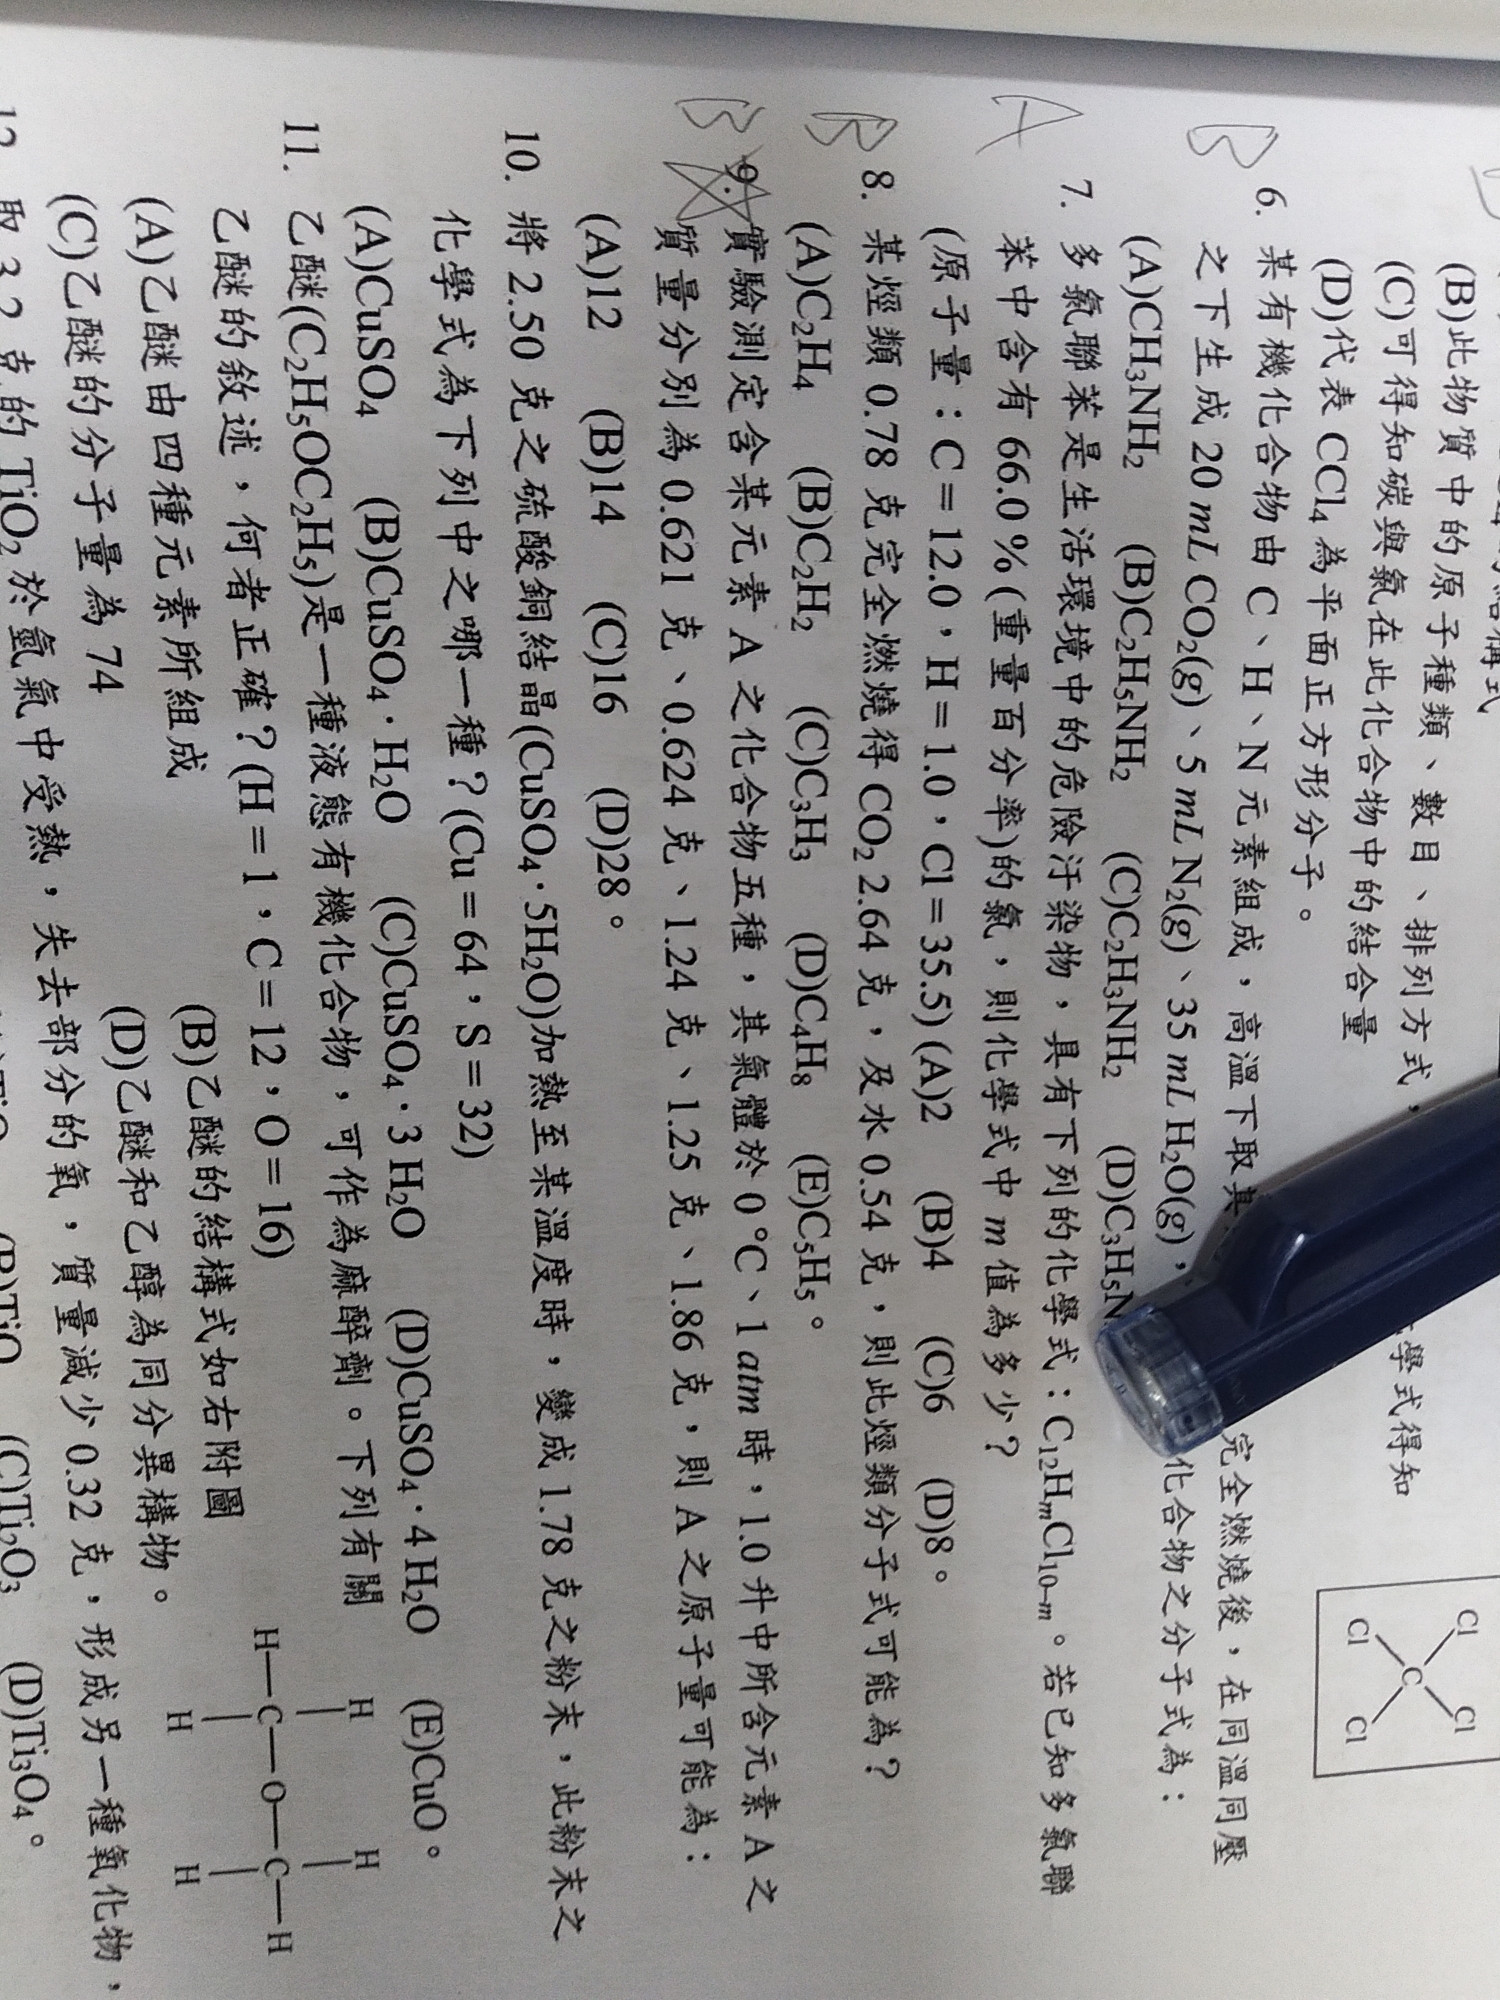 結構式
(B)此物質中的原子種類、數目、排列方式,
學式得知
(C)可得知碳與氯在此化合物中的結合量
(D)代表 CCl₄ 為平面正方形分子。
Cl Cl
C
Cl Cl
B
6. 某有機化合物由 C、H、N 元素組成,高溫下取其 完全燃燒後,在同溫同壓
之下生成 20 mL CO₂(g)、5 mL N₂(g)、35 mL H₂O(g), 化合物之分子式為:
(A)CH₃NH₂ (B)C₂H₅NH₂ (C)C₂H₃NH₂ (D)C₃H₅N
A
7. 多氯聯苯是生活環境中的危險汙染物,具有下列的化學式:C₁₂HₘCl₁₀₋ₘ。若已知多氯聯
苯中含有 66.0 %(重量百分率)的氯,則化學式中 m 值為多少?
(原子量:C=12.0,H=1.0,Cl=35.5) (A)2 (B)4 (C)6 (D)8。
B
8. 某烴類 0.78 克完全燃燒得 CO₂ 2.64 克,及水 0.54 克,則此烴類分子式可能為?
(A)C₂H₄ (B)C₂H₂ (C)C₃H₃ (D)C₄H₈ (E)C₅H₅。
B
9. 實驗測定含某元素 A 之化合物五種,其氣體於 0 ℃、1 atm 時,1.0 升中所含元素 A 之
質量分別為 0.621 克、0.624 克、1.24 克、1.25 克、1.86 克,則 A 之原子量可能為:
(A)12 (B)14 (C)16 (D)28。
10. 將 2.50 克之硫酸銅結晶(CuSO₄·5H₂O)加熱至某溫度時,變成 1.78 克之粉末,此粉末之
化學式為下列中之哪一種?(Cu=64,S=32)
(A)CuSO₄ (B)CuSO₄·H₂O (C)CuSO₄·3 H₂O (D)CuSO₄·4 H₂O (E)CuO。
11. 乙醚(C₂H₅OC₂H₅)是一種液態有機化合物,可作為麻醉劑。下列有關
乙醚的敘述,何者正確?(H=1,C=12,O=16)
(A)乙醚由四種元素所組成 (B)乙醚的結構式如右附圖
(C)乙醚的分子量為 74 (D)乙醚和乙醇為同分異構物。
H H
H—C—O—C—H
H H
12. 取 3.2 克的 TiO₂ 於氫氣中受熱,失去部分的氧,質量減少 0.32 克,形成另一種氧化物,
(B)TiO (C)Ti₂O₃ (D)Ti₃O₄。